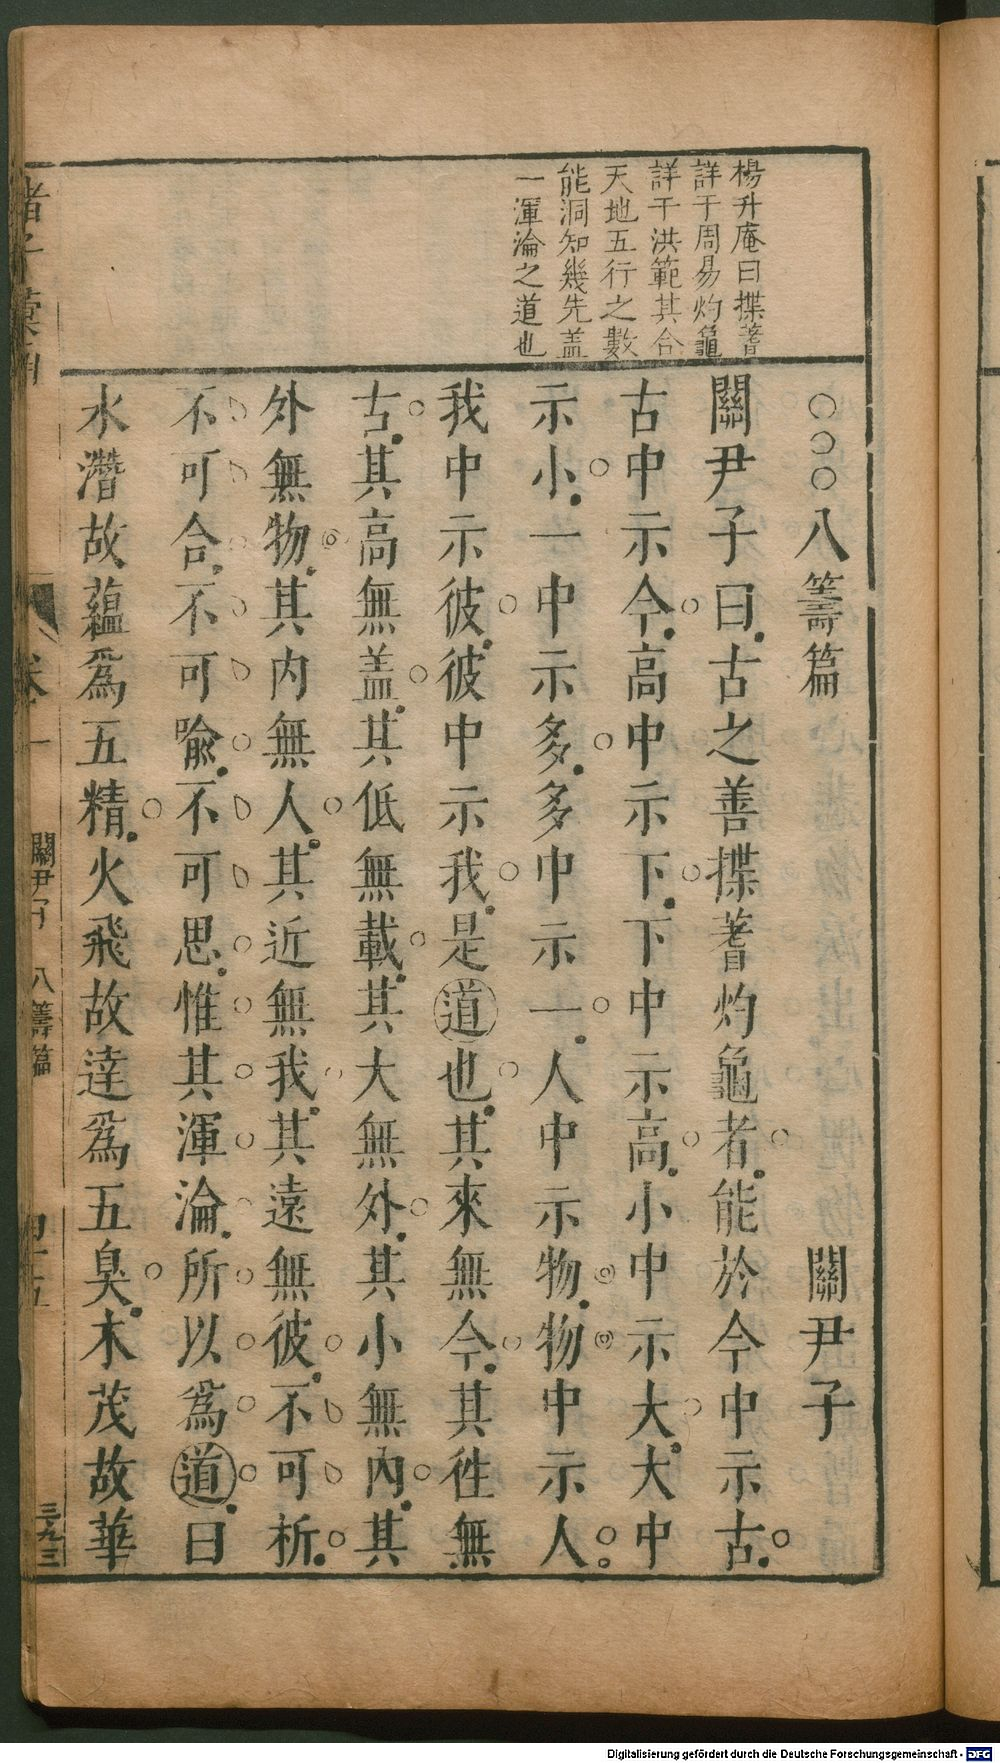 楊升庵曰揲蓍
詳于周易灼龜
詳于洪範其合
天地五行之數
能洞知幾先盖
一渾淪之道也
○○○八籌篇 關尹子
關尹子曰古之善揲蓍灼龜者能於今中示古
古中示今高中示下下中示高小中示大大中
示小一中示多多中示一人中示物物中示人
我中示彼彼中示我是道也其來無今其徃無
古其高無盖其低無載其大無外其小無內其
外無物其內無人其近無我其遠無彼不可析
不可合不可喻不可思惟其渾淪所以爲道曰
水潛故蘊爲五精火飛故達爲五臭木茂故華
諸子 卷一 關尹子 八籌篇 四十五 三九三
Digitalisierung gefördert durch die Deutsche Forschungsgemeinschaft - DFG